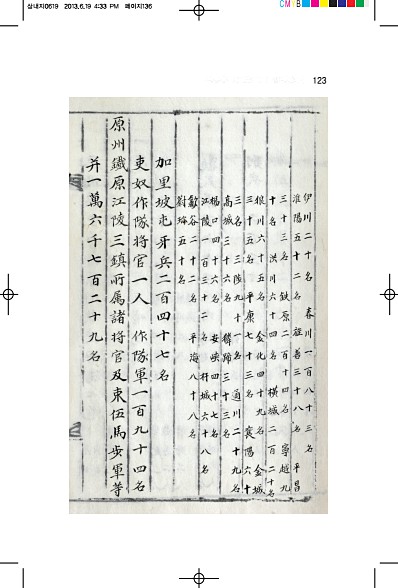 삼내지0619 2013.6.19 4:33 PM 페이지136
123
伊川二十名 春川一百八十三名
淮陽五十二名 旌善三十八名 平昌
三十三名 鉄原二百十四名 寧越九
十名 洪川六十四名 橫城二百二十名
狼川六十五名 金化四十九名 金城
三十五名 平康七十三名 襄陽六十
三名 三陟九十一名 通川二十九名
高城三十六名 麟蹄三十三名
楊口四十六名 安峽四十七名
江陵一百三十二名 杆城六十八名
歙谷二十二名 平海八十八名
蔚珍五十名
加里坡屯牙兵二百四十七名
吏奴作隊將官一人 作隊軍一百九十四名
原州鐵原江陵三鎮所属諸將官及束伍馬步軍等
并一萬六千七百二十九名